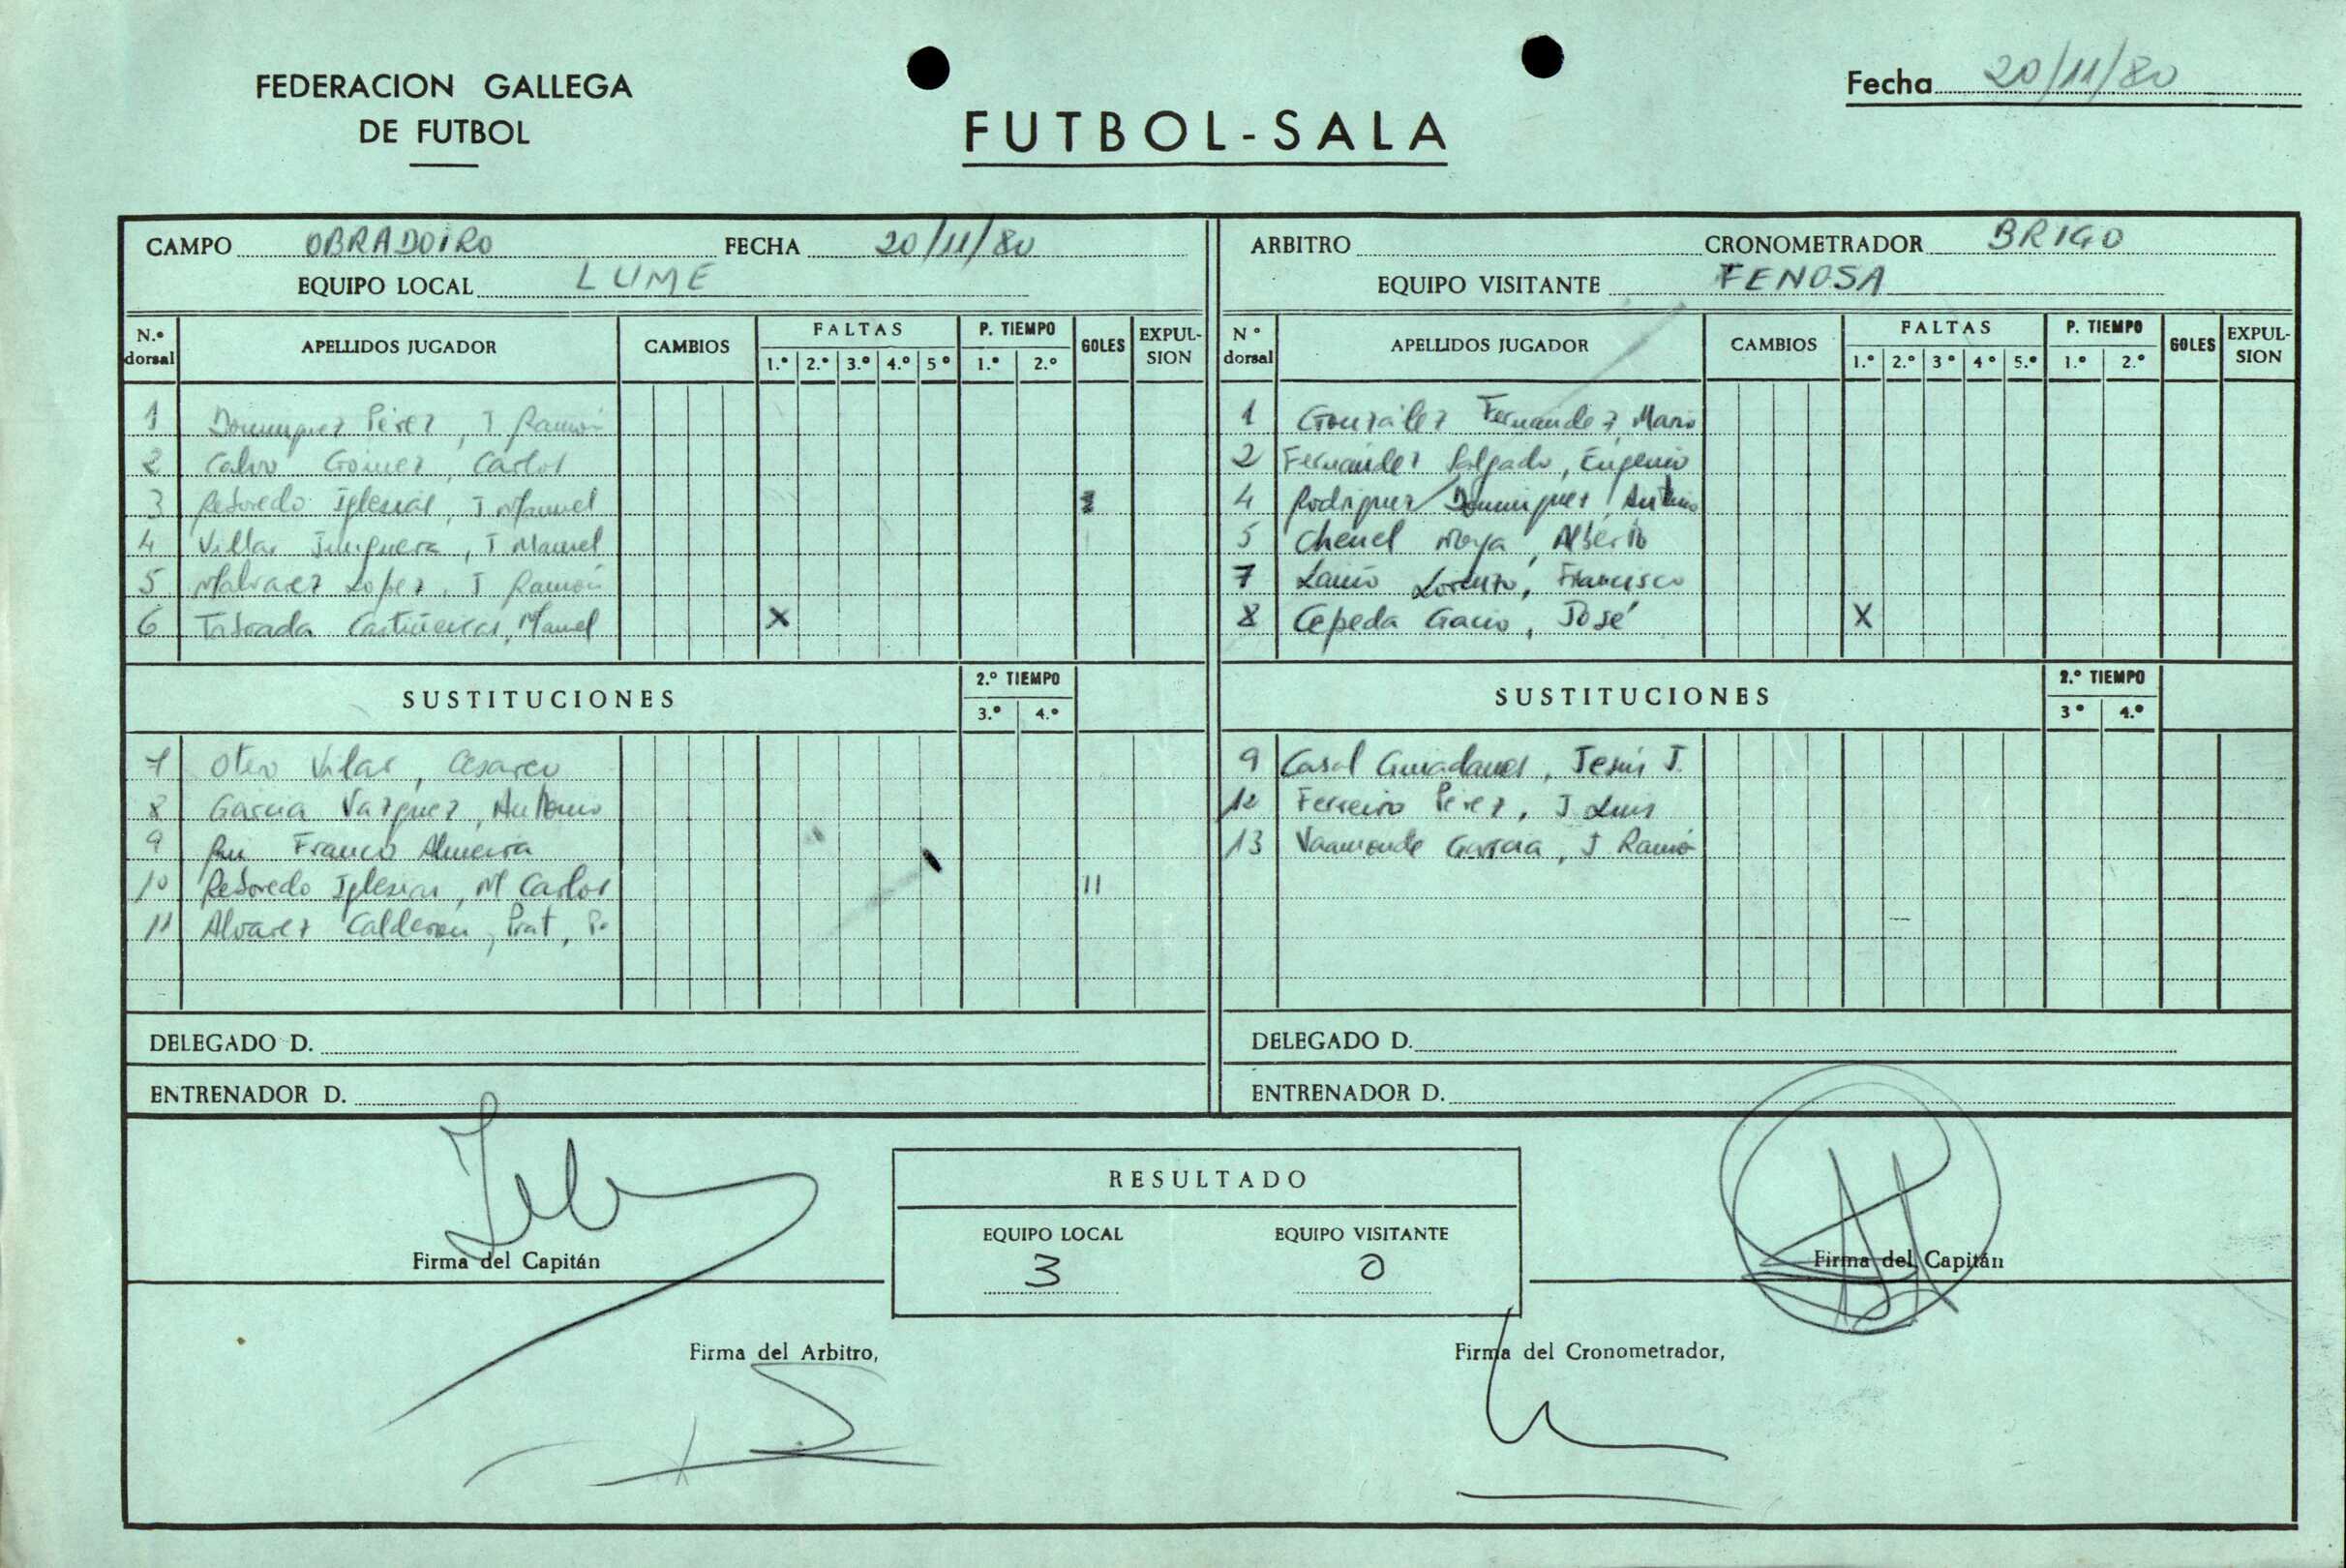 FEDERACION GALLEGA
DE FUTBOL
FUTBOL-SALA
Fecha 20/11/80
CAMPO OBRADOIRO FECHA 20/11/80
EQUIPO LOCAL LUME
N.º dorsal APELLIDOS JUGADOR CAMBIOS FALTAS 1.º 2.º 3.º 4.º 5º P. TIEMPO 1.º 2.º GOLES EXPUL-SION
1 Dominguez Pérez, J Ramón
2 Calvo Gómez, Carlos
3 Reboredo Iglesias, J Manuel
4 Villar Junquera, J Manuel
5 Malvarez Lopez, J Ramón
6 Taboada Castiñeiras, Manuel X
SUSTITUCIONES 2.º TIEMPO 3.º 4.º
7 Otero Vilar, Cesareo
8 Garcia Vazquez, Antonio
9 Rui Franco Almeira
10 Reboredo Iglesias, M Carlos 11
11 Alvarez Calderon, Prat, P.
DELEGADO D.
ENTRENADOR D.
ARBITRO CRONOMETRADOR BRIGO
EQUIPO VISITANTE FENOSA
Nº dorsal APELLIDOS JUGADOR CAMBIOS FALTAS 1.º 2.º 3º 4º 5.º P. TIEMPO 1.º 2.º GOLES EXPUL-SION
1 González Fernandez, Mario
2 Fernández Salgado, Eugenio
4 Rodriguez Dominguez, Antonio
5 Chenel Moya, Alberto
7 Lorenzo, Francisco
8 Cepeda Gacio, José X
SUSTITUCIONES 2.º TIEMPO 3º 4.º
9 Casal Jesús J.
12 Ferreiro Pérez, J Luis
13 Vaamonde Garcia, J Ramón
DELEGADO D.
ENTRENADOR D.
RESULTADO
EQUIPO LOCAL EQUIPO VISITANTE
3 0
Firma del Capitán
Firma del Capitán
Firma del Arbitro,
Firma del Cronometrador,